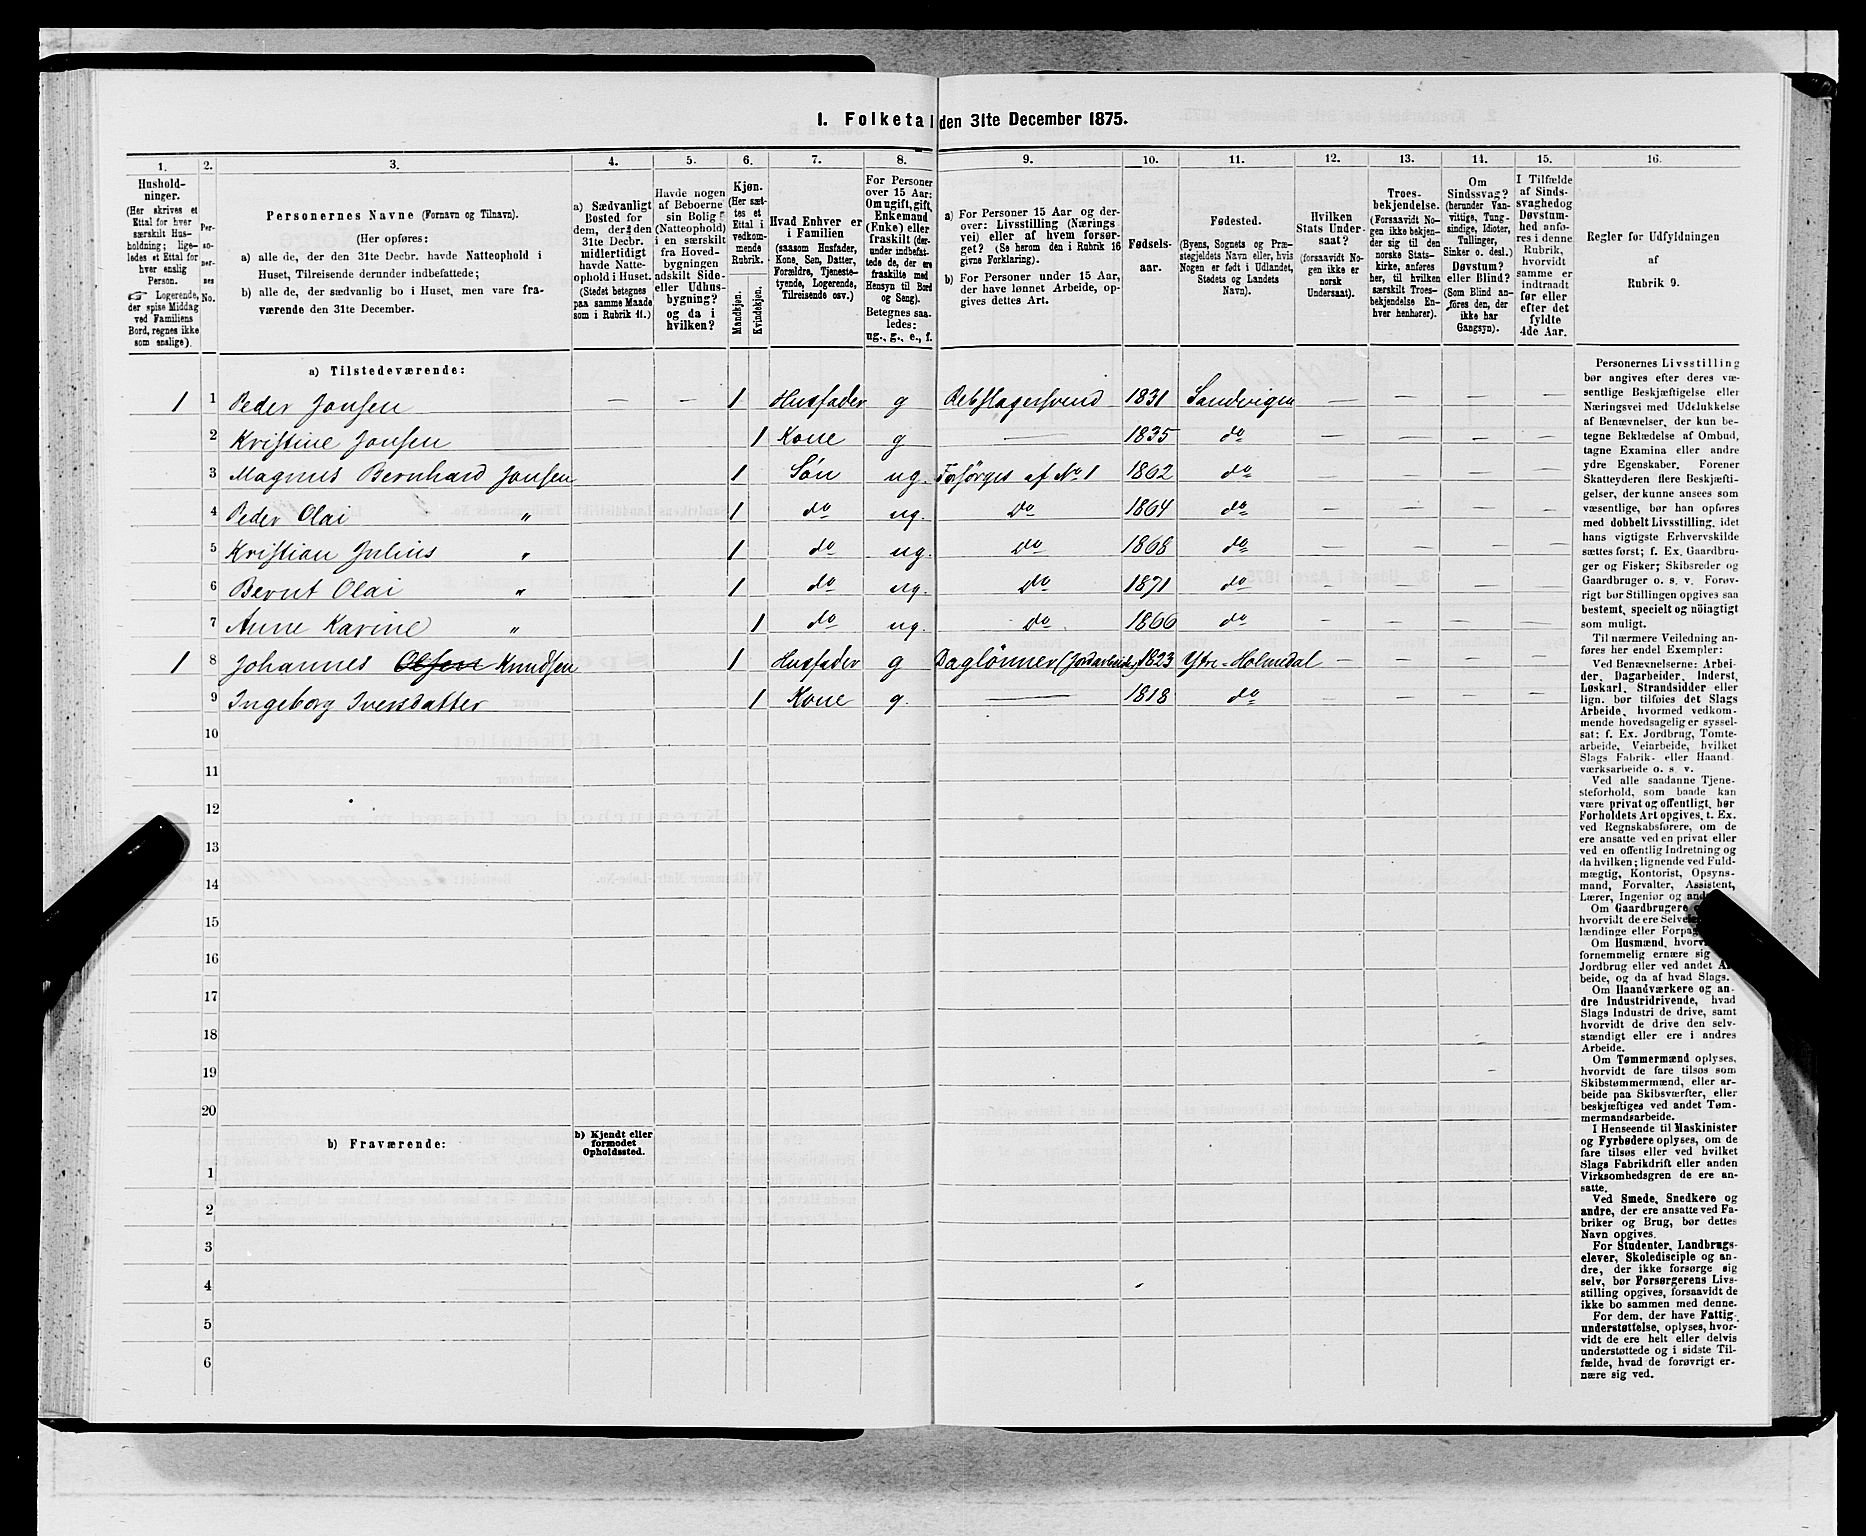 I. Folketal den 31te December 1875.
1. 2. 3. 4. 5. 6. 7. 8. 9. 10. 11. 12. 13. 14. 15. 16.
Hushold-
ninger.
(Her skrives et
Ettal for hver
særskilt Hus-
holdning; lige-
ledes et Ettal for
hver enslig
Person.
☞ Logerende,
der spise Middag
ved Familiens
Bord, regnes ikke
som enslige).
Per-
so-
ner-
nes
No.
Personernes Navne (Fornavn og Tilnavn).
(Her opføres:
a) alle de, der den 31te Decbr. havde Natteophold i
Huset, Tilreisende derunder indbefattede;
b) alle de, der sædvanlig bo i Huset, men vare fra-
værende den 31te December.
a) Sædvanligt
Bosted for
dem, der den
31te Decbr.
midlertidigt
havde Natte-
ophold i Huset.
(Stedet betegnes
paa samme Maade
som i Rubrik 11.)
Havde nogen
af Beboerne
sin Bolig
(Natteophold)
i en særskilt
fra Hoved-
bygningen
adskilt Side-
eller Udhus-
bygning?
og da i
hvilken?
Kjøn.
(Her sæt-
tes et
Ettal i
vedkom-
mende
Rubrik.
Mandkjøn.
Kvindekjøn.
Hvad Enhver er
i Familien
(saasom Husfader,
Kone, Søn, Datter,
Forældre, Tjeneste-
tyende, Logerende,
Tilreisende osv.)
For Personer
over 15 Aar:
Om ugift, gift,
Enkemand
(Enke) eller
fraskilt (der-
under indbefat-
tede de, der ere
fraskilte med
Hensyn til Bord
og Seng).
Betegnes saa-
ledes:
ug., g., e., f.
a) For Personer 15 Aar og der-
over: Livsstilling (Nærings
vei) eller af hvem forsør-
get? (Se herom den i Rubrik 16
givne Forklaring).
b) For Personer under 15 Aar,
der have lønnet Arbeide, op-
gives dettes Art.
Fødsels-
aar.
Fødested.
(Byens, Sognets og Præ-
stegjeldets Navn eller, hvis
Nogen er født i Udlandet,
Stedets og Landets
Navn).
Hvilken
Stats Under-
saat?
(forsaavidt No-
gen ikke er
norsk
Undersaat).
Troes-
bekjendelse.
(Forsaavidt No-
gen ikke bekjen-
der sig til den
norske Stats-
kirke, anføres
her, til hvilken
særskilt Troes-
bekjendelse En-
hver henhører).
Om
Sindssvag?
(herunder Van-
vittige, Tung-
sindige, Idioter,
Tullinger,
Sinker o. desl.)
Døvstum?
eller Blind?
(Som Blind an-
føres den, der
ikke har
Gangsyn).
I Tilfælde
af Sinds-
svaghed og
Døvstum-
hed anfø-
res i denne
Rubrik,
hvorvidt
samme er
indtraadt
før eller
efter det
fyldte
4de Aar.
Regler for Udfyldningen
af
Rubrik 9.
a) Tilstedeværende:
1 1 Peder Jonsen — — 1 Husfader g Rebslagersvend 1831 Sandvigen — — — —
2 Kristine Jonsen 1 Kone g — 1835 do — — — —
3 Magnus Bernhard Jonsen 1 Søn ug. Forsørges af No 1 1862 do — — — —
4 Peder Olai " 1 do ug. Do 1864 do — — — —
5 Kristian Julius " 1 do ug. Do 1868 do — — — —
6 Bernt Olai " 1 do ug. Do 1871 do — — — —
7 Anne Karine " 1 do ug. do 1866 do — — — —
1 8 Johannes Olsen Knudsen 1 Husfader g Daglønner (Jordarbeide) 1823 Ytre-Holmedal — — — —
9 Ingeborg Iversdatter 1 Kone g. — 1818 do — — — —
10
11
12
13
14
15
16
17
18
19
20
b) Fraværende:
b) Kjendt eller
formodet
Opholdssted.
1
2
3
4
5
6
Personernes Livsstilling
bør angives efter deres væ-
sentlige Beskjæftigelse eller
Næringsvei med Udelukkelse
af Benævnelser, der kun be-
tegne Beklædelse af Ombud,
tagne Examina eller andre
ydre Egenskaber. Forener
Skatteyderen flere Beskjæfti-
gelser, der kunne ansees som
væsentlige, bør han opføres
med dobbelt Livsstilling, idet
hans vigtigste Erhvervskilde
sættes først; f. Ex. Gaardbru-
ger og Fisker; Skibsreder og
Gaardbruger o. s. v. Forøv-
rigt bør Stillingen opgives saa
bestemt, specielt og nøiagtigt
som muligt.
Til nærmere Veiledning an-
føres her endel Exempler:
Ved Benævnelserne: Arbei-
der, Dagarbeider, Inderst,
Løskarl, Strandsidder eller
lign. bør tilføies det Slags
Arbeide, hvormed vedkom-
mende hovedsagelig er syssel-
sat; f. Ex. Jordbrug, Tomte-
arbeide, Veiarbeide, hvilket
Slags Fabrik- eller Haand
værksarbeide o. s. v.
Ved alle saadanne Tjene-
steforhold, som baade kan
være privat og offentligt, bør
Forholdets Art opgives, t. Ex.
ved Regnskabsførere, om de
ere ansatte ved en privat eller
ved en offentlig Indretning og
da hvilken; lignende ved Fuld-
mægtig, Kontorist, Opsyns-
mand, Forvalter, Assistent,
Lærer, Ingeniør og
Om Gaardbrugere
hvorvidt de ere
lændinge eller
Om Husmænd,
fornemmelig ernære sig
Jordbrug eller ved andet
beide, og da af hvad Slags.
Om Haandværkere og an-
dre Industridrivende, hvad
Slags Industri de drive, samt
hvorvidt de drive den selv-
stændigt eller ere i andres
Arbeide.
Om Tømmermænd oplyses,
hvorvidt de fare tilsøs som
Skibstømmermænd, eller ar-
beide paa Skibsværfter, eller
beskjæftiges ved andet Tøm-
mermandsarbeide.
I Henseende til Maskinister
og Fyrbødere oplyses, om de
fare tilsøs eller ved hvilket
Slags Fabrikdrift eller anden
Virksomhedsgren de ere an-
satte.
Ved Smede, Snedkere og
andre, der ere ansatte ved Fa-
briker og Brug, bør dettes
Navn opgives.
For Studenter, Landbrugs-
elever, Skoledisciple og an-
dre, der ikke forsørge sig
selv, bør Forsørgerens Livs-
stilling opgives, forsaavidt de
ikke bo sammen med denne.
For dem, der have Fattig-
understøttelse, oplyses, hvor-
vidt de ere helt eller delvis
understøttede og i sidste Til-
fælde, hvad de forøvrigt er-
nære sig ved.